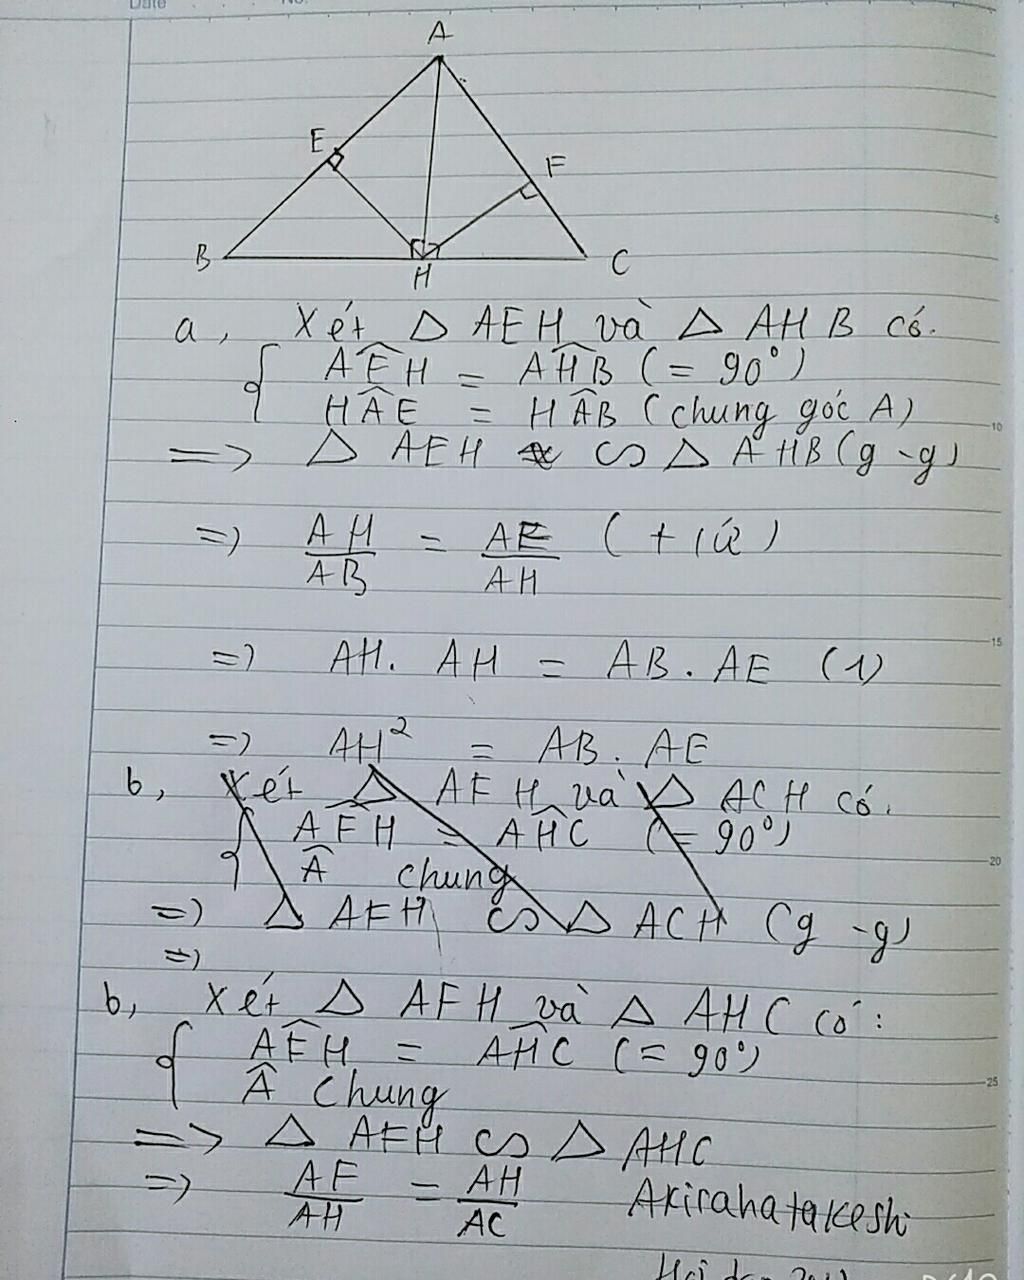 Date No.
A
E
F
B
H
C
5
a, Xét △ AEH và △ AHB có.
AÊH = AĤB (= 90°)
HÂE = HÂB (chung góc A)
10
=> △ AEH ∽ △ AHB (g-g)
=> AH/AB = AE/AH (tỉ lệ)
15
=> AH. AH = AB. AE (1)
=> AH² = AB. AE
b, Xét △ AFH và △ ACH có.
AF̂H = AĤC (= 90°)
20
Â chung
=> △ AFH ∽ △ ACH (g-g)
=>
b, Xét △ AFH và △ AHC có:
AF̂H = AĤC (= 90°)
25
Â Chung
=> △ AFH ∽ △ AHC
=> AF/AH = AH/AC Akirahatakeshi